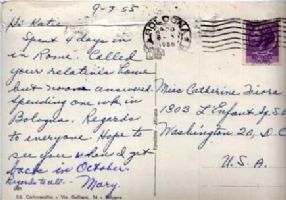 9-7-55
Hi Katie,
Spent 4 days in
in Rome. Called
your relatives home
but no one answered.
Spending one wk in
Bologna. Regards
to everyone. Hope to
see you when I get
back in October.
Regards to all. - Mary.
BOLOGNA
Miss Catherine
1303 L'Enfant Sq. S.E.
Washington 20, D.C.
U.S.A.
Via Galliera,
Bologna